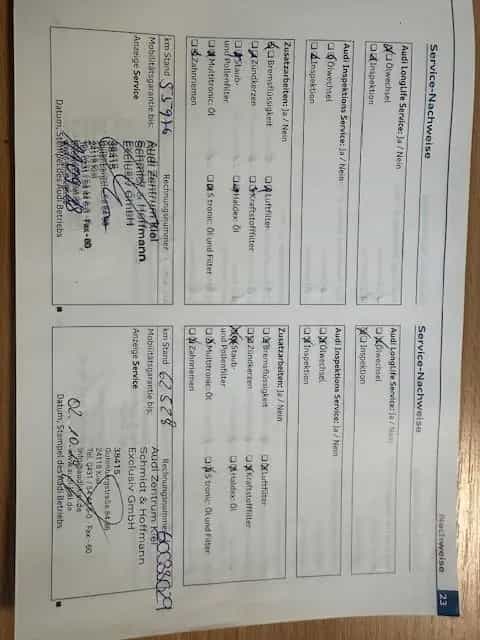 Nachweise 23
Service-Nachweise
Audi LongLife Service: Ja / Nein
Ölwechsel
Inspektion
Audi Inspektions Service: Ja / Nein
Ölwechsel
Inspektion
Zusatzarbeiten: Ja / Nein
Bremsflüssigkeit Luftfilter
Zündkerzen Kraftstofffilter
Staub- und Pollenfilter Haldex: Öl
Multitronic: Öl S tronic: Öl und Filter
Zahnriemen
km Stand 55976 Rechnungsnummer
Mobilitätsgarantie bis: Audi Zentrum Kiel
Schmidt & Hoffmann
Anzeige Service Exclusiv GmbH
38415
24118 Kiel
Datum, Stempel des Audi Betriebs
Service-Nachweise
Audi LongLife Service: Ja / Nein
Ölwechsel
Inspektion
Audi Inspektions Service: Ja / Nein
Ölwechsel
Inspektion
Zusatzarbeiten: Ja / Nein
Bremsflüssigkeit Luftfilter
Zündkerzen Kraftstofffilter
Staub- und Pollenfilter Haldex: Öl
Multitronic: Öl S tronic: Öl und Filter
Zahnriemen
km Stand 62528 Rechnungsnummer
Mobilitätsgarantie bis: Audi Zentrum Kiel
Schmidt & Hoffmann
Anzeige Service Exclusiv GmbH
38415
24118 Kiel
Datum, Stempel des Audi Betriebs